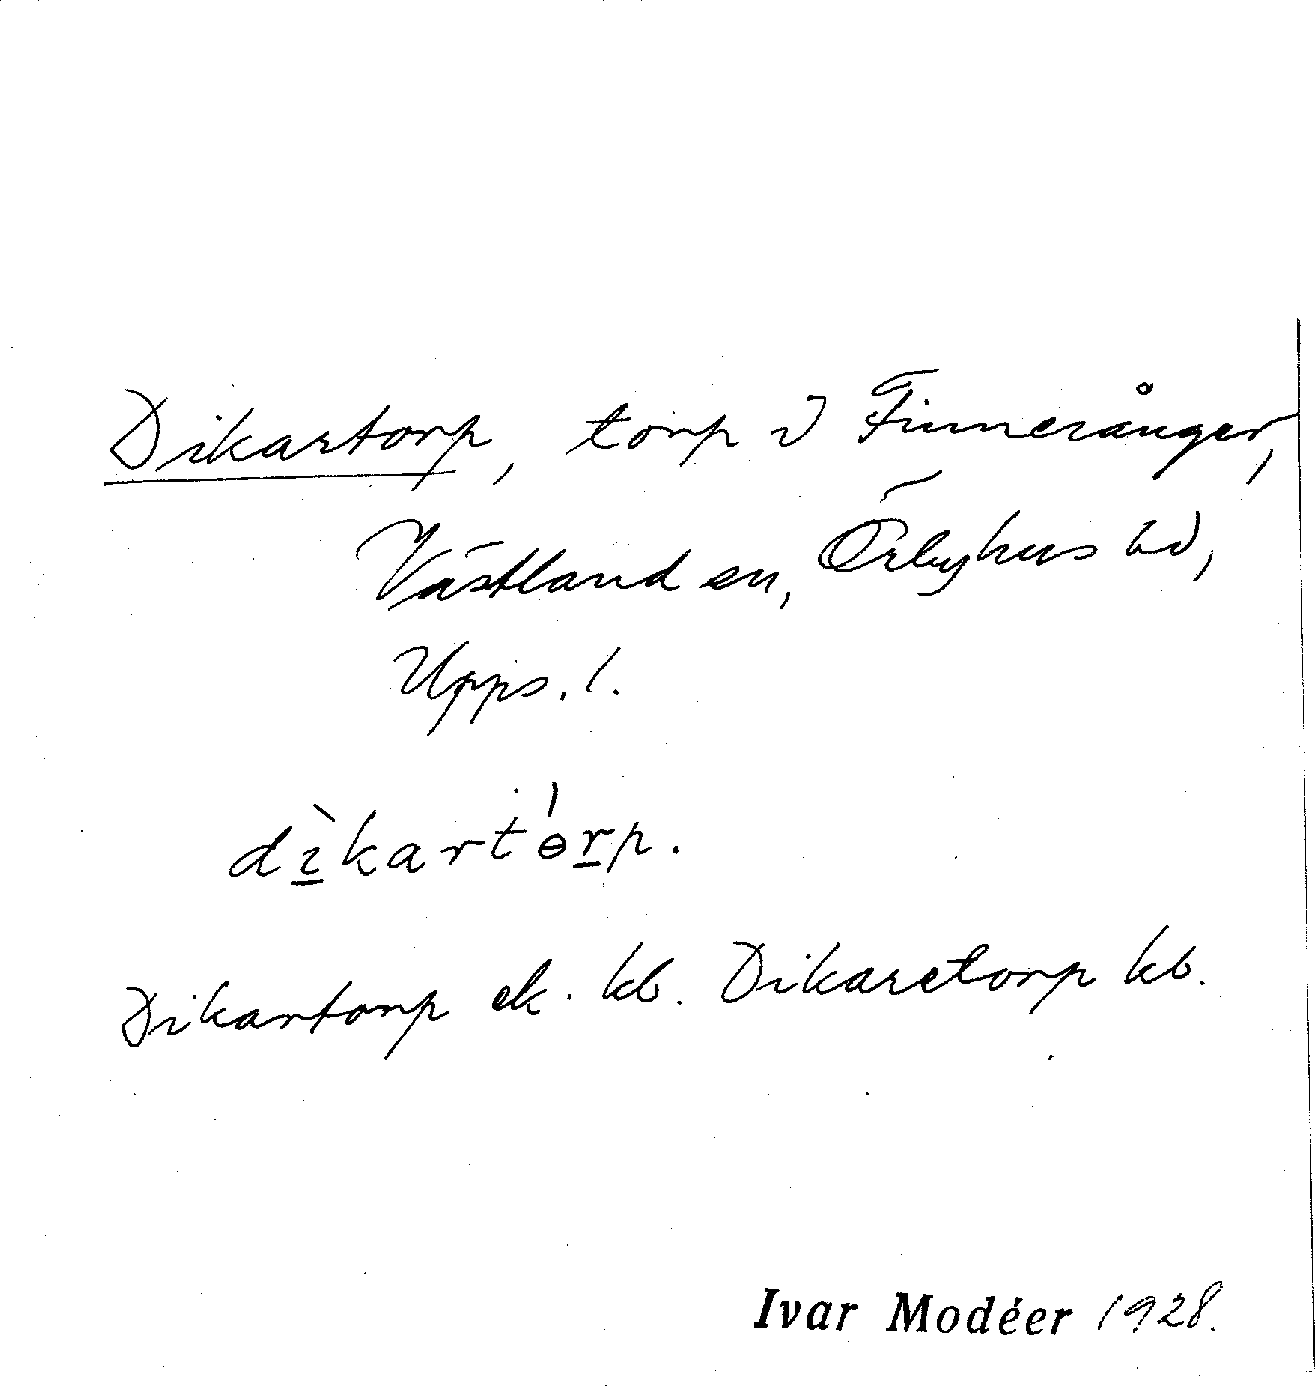 Dikartorp, torp i Finnerånger,
Västland sn, Örbyhus hd,
Upps. l.
dìkartórp.
Dikartorp ek. kb. Dikaretorp kb.
Ivar Modéer 1928.